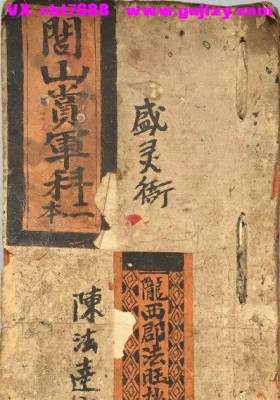 VX zbt7688 www.gujizy.com
閭山賞軍科一本
盛灵衙
隴西郡法旺抄
陳法達